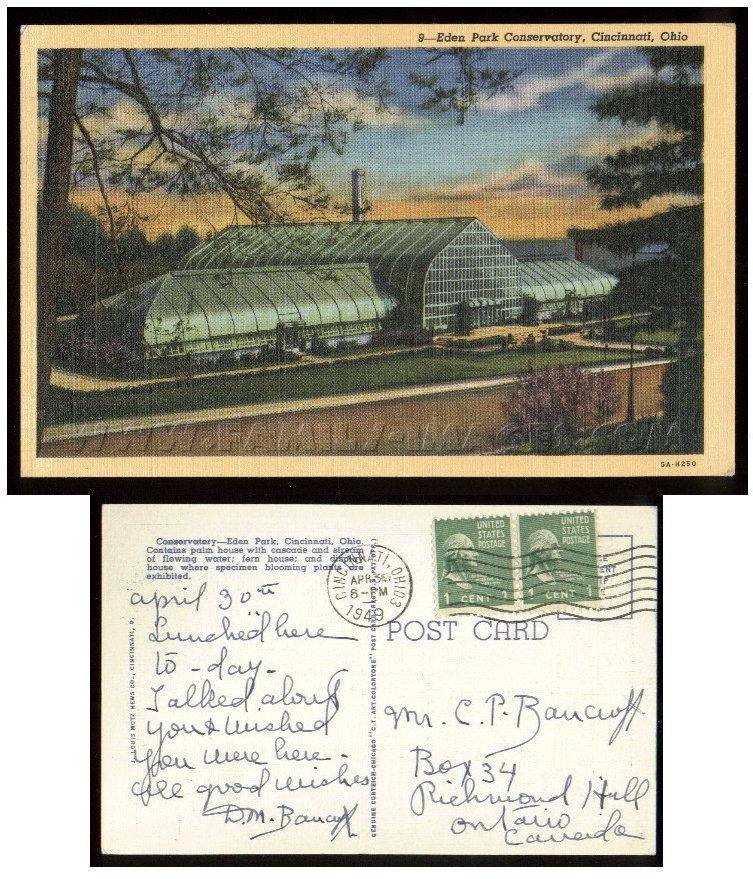 9—Eden Park Conservatory, Cincinnati, Ohio
WWW.FAMILY-IMAGES.COM
5A-H250
Conservatory—Eden Park, Cincinnati, Ohio.
Contains palm house with cascade and stream
of flowing water; fern house; and display
house where specimen blooming plants are
exhibited.
CINCINNATI, OHIO 3
APR 30
8-PM
1949
UNITED
STATES
POSTAGE
1 CENT 1
UNITED
STATES
POSTAGE
1 CENT 1
POST CARD
april 30th
Lunched here
to-day-
Talked about
you & wished
you were here-
all good wishes
D.M. Bancroft
LOUIS MOTZ NEWS CO., CINCINNATI, O.
GENUINE CURTEICH-CHICAGO "C.T. ART-COLORTONE" POST CARD
Mr. C. P. Bancroft
Box 34
Richmond Hill
Ontario
Canada